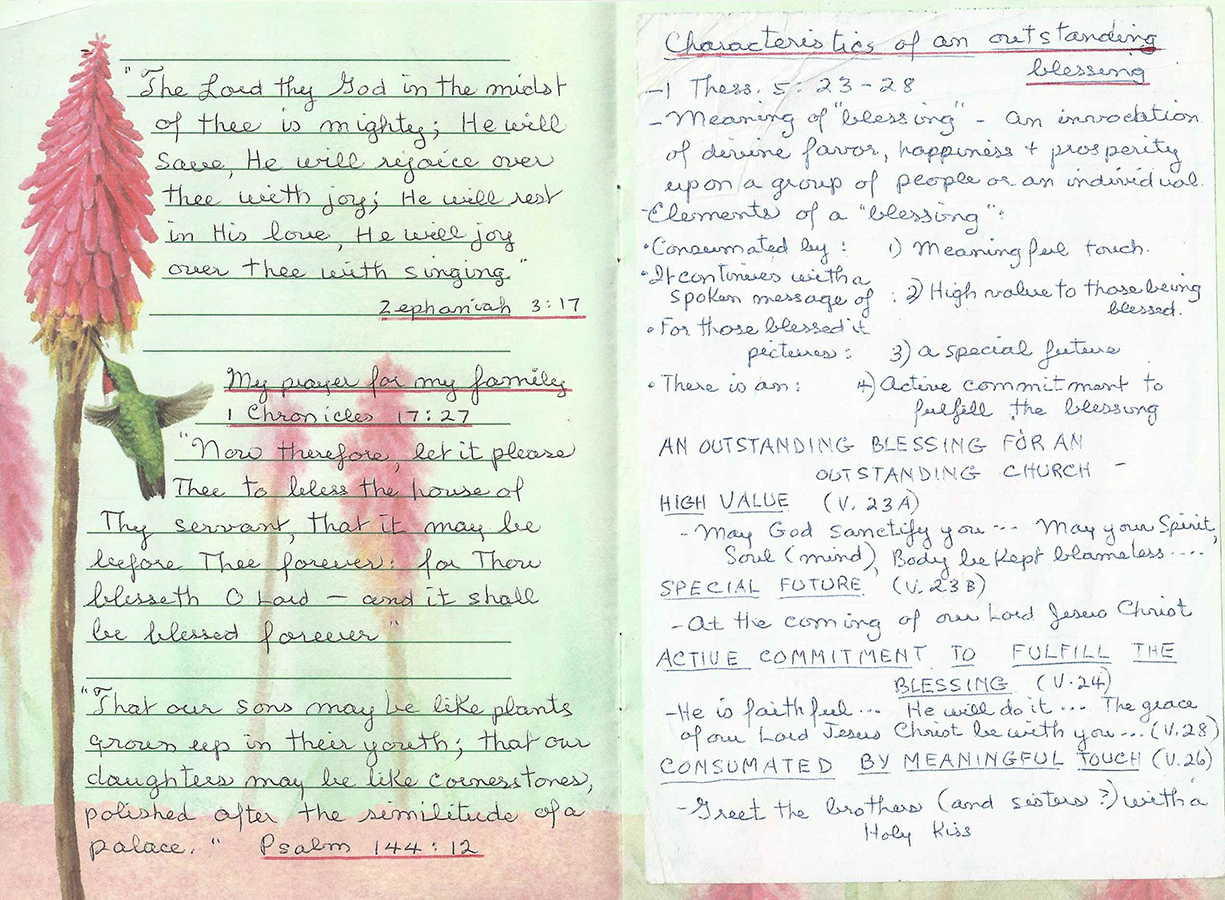 "The Lord thy God in the midst
of thee is mighty; He will
save, He will rejoice over
thee with joy; He will rest
in His love, He will joy
over thee with singing"
Zephaniah 3:17
My prayer for my family
1 Chronicles 17:27
"Now therefore, let it please
Thee to bless the house of
Thy servant, that it may be
before Thee forever: for Thou
blesseth O Lord — and it shall
be blessed forever"
"That our sons may be like plants
grown up in their youth; that our
daughters may be like cornerstones,
polished after the similitude of a
palace." Psalm 144:12
Characteristics of an outstanding
blessing
-1 Thess. 5:23-28
- Meaning of "blessing" - an invocation
of divine favor, happiness + prosperity
upon a group of people or an individual.
- Elements of a "blessing":
• Consumated by: 1) Meaningful touch.
• It continues with a
spoken message of : 2) High value to those being
blessed.
• For those blessed it
pictures: 3) a special future
• There is an: 4) Active commitment to
fulfill the blessing
AN OUTSTANDING BLESSING FOR AN
OUTSTANDING CHURCH -
HIGH VALUE (V. 23A)
- May God sanctify you --- May your Spirit,
Soul (mind), Body be kept blameless ....
SPECIAL FUTURE (V. 23B)
- At the coming of our Lord Jesus Christ
ACTIVE COMMITMENT TO FULFILL THE
BLESSING (V.24)
- He is faithful ... He will do it ... The grace
of our Lord Jesus Christ be with you ... (V.28)
CONSUMATED BY MEANINGFUL TOUCH (V.26)
- Greet the brothers (and sisters?) with a
Holy Kiss